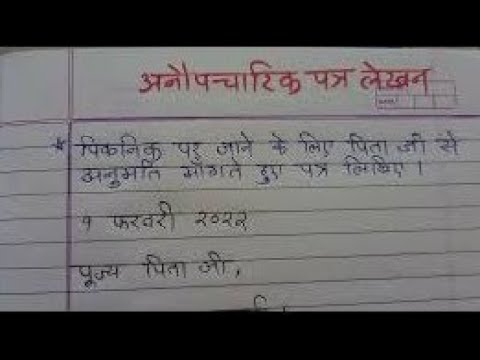 अनौपच्चारिक पत्र लेखन
* पिकनिक पर जाने के लिए पिता जी से
अनुमति माँगते हुए पत्र लिखिए।
१ फरवरी २०२२
पूज्य पिता जी,